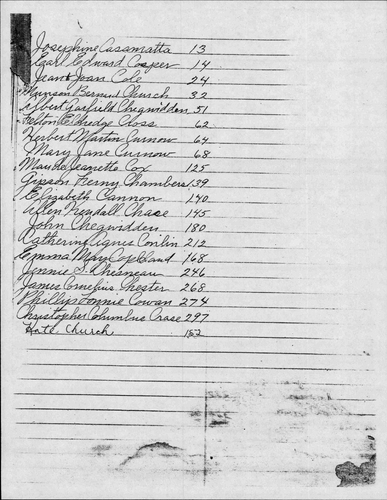 Josephine Casamatta 13
Earl Edward Cosper 14
Jean Joan Cole 24
Munson Bernerd Church 32
Albert Garfield Chegwidden 51
Felton Eldredge Cross 62
Herbert Martin Curnow 64
Mary Jane Curnow 68
Maude Jeanette Cox 125
Gipson Henry Chambers 139
Elizabeth Cannon 140
Allen Kendall Chase 145
John Chegwidden 180
Catherine Agnes Conlin 212
Emma May Copeland 168
Jennie S. Chesneau 246
James Cornelius Chester 268
Phillip Lonnie Cowan 274
Christopher Columbus Crase 297
Kate Church 152